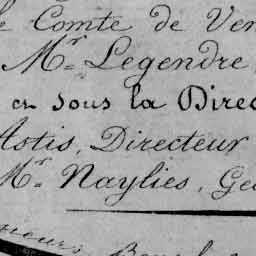 le Comte de Ven
Mr. Legendre,
en sous la Direc
Astis, Directeur
Mr. Naylies, Ge